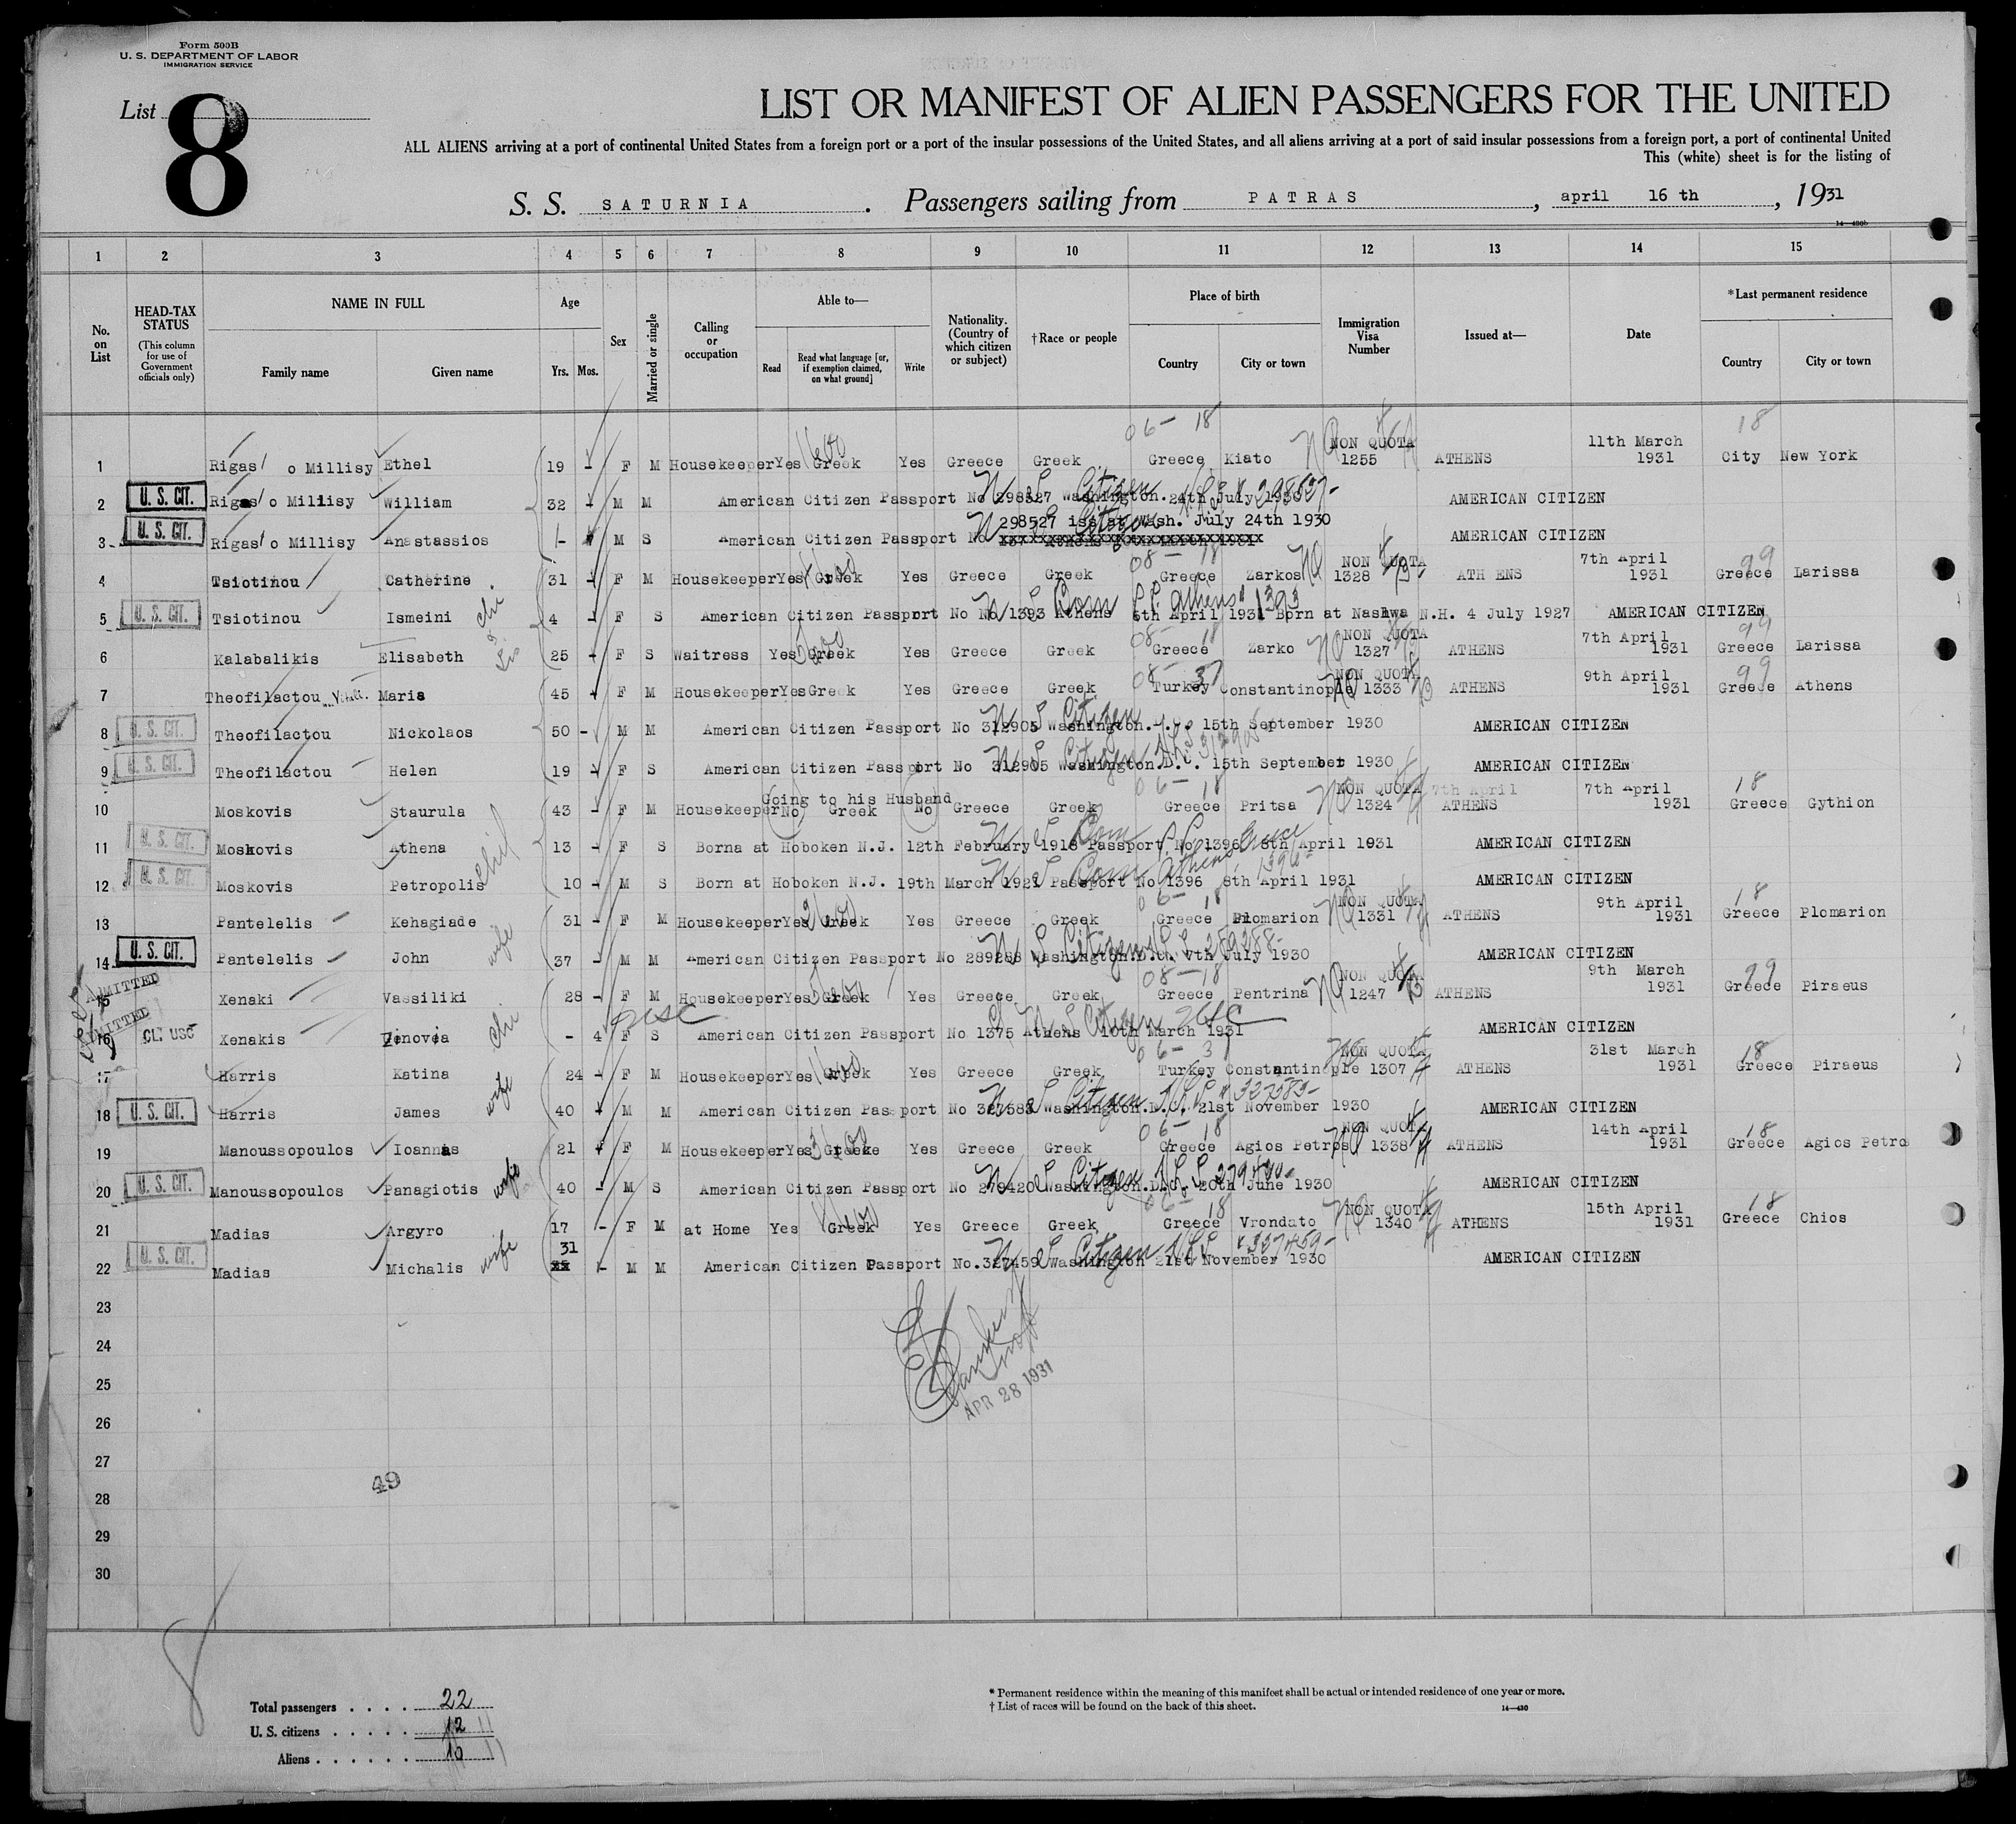 Form 500B
U. S. DEPARTMENT OF LABOR
IMMIGRATION SERVICE
List 8
LIST OR MANIFEST OF ALIEN PASSENGERS FOR THE UNITED
ALL ALIENS arriving at a port of continental United States from a foreign port or a port of the insular possessions of the United States, and all aliens arriving at a port of said insular possessions from a foreign port, a port of continental United
This (white) sheet is for the listing of
S. S. SATURNIA. Passengers sailing from PATRAS, april 16 th, 1931
14—430b
1 2 3 4 5 6 7 8 9 10 11 12 13 14 15
No. on List
HEAD-TAX STATUS (This column for use of Government officials only)
NAME IN FULL
Family name Given name
Age
Yrs. Mos.
Sex
Married or single
Calling or occupation
Able to—
Read Read what language [or, if exemption claimed, on what ground] Write
Nationality. (Country of which citizen or subject)
†Race or people
Place of birth
Country City or town
Immigration Visa Number
Issued at—
Date
*Last permanent residence
Country City or town
06— 18 NON QUOTA 11th March 18
1 Rigas o Millisy Ethel 19 - F M Housekeeper Yes Greek Yes Greece Greek Greece Kiato 1255 ATHENS 1931 City New York
2 U. S. CIT. Rigas o Millisy William 32 - M M American Citizen Passport No 298527 Washington. 24th July 1930 AMERICAN CITIZEN
298527 iss at Wash. July 24th 1930
3 U. S. CIT. Rigas o Millisy Anastassios M S American Citizen Passport No AMERICAN CITIZEN
08— 18 NON QUOTA 7th April 99
4 Tsiotinou Catherine 31 - F M Housekeeper Yes Greek Yes Greece Greek Greece Zarkos 1328 ATH ENS 1931 Greece Larissa
5 U. S. CIT. Tsiotinou Ismeini 4 - F S American Citizen Passport No No 1393 Athens 6th April 1931 Born at Nashwa N.H. 4 July 1927 AMERICAN CITIZEN
08— 18 NON QUOTA 7th April 99
6 Kalabalikis Elisabeth 25 - F S Waitress Yes Greek Yes Greece Greek Greece Zarko 1327 ATHENS 1931 Greece Larissa
08— 37 NON QUOTA 9th April 99
7 Theofilactou Maria 45 - F M Housekeeper Yes Greek Yes Greece Greek Turkey Constantinople 1333 ATHENS 1931 Greece Athens
8 U. S. CIT. Theofilactou Nickolaos 50 - M M American Citizen Passport No 312905 Washington. 15th September 1930 AMERICAN CITIZEN
9 U. S. CIT. Theofilactou Helen 19 - F S American Citizen Passport No 312905 Washington.D.C. 15th September 1930 AMERICAN CITIZEN
Going to his Husband 06— 18 NON QUOTA 7th April 7th April 18
10 Moskovis Staurula 43 - F M Housekeeper No Greek No Greece Greek Greece Pritsa 1324 ATHENS 1931 Greece Gythion
11 U. S. CIT. Moskovis Athena 13 - F S Borna at Hoboken N.J. 12th February 1918 Passport No 1396 8th April 1931 AMERICAN CITIZEN
12 U. S. CIT. Moskovis Petropolis 10 - M S Born at Hoboken N.J. 19th March 1921 Passport No 1396 8th April 1931 AMERICAN CITIZEN
06— 18 NON QUOTA 9th April 18
13 Pantelelis Kehagiade 31 - F M Housekeeper Yes Greek Yes Greece Greek Greece Plomarion 1331 ATHENS 1931 Greece Plomarion
14 U. S. CIT. Pantelelis John wife 37 - M M American Citizen Passport No 289288 Washington.D.C. 7th July 1930 AMERICAN CITIZEN
ADMITTED 08—18 NON QUOTA 9th March 99
15 Xenaki Vassiliki 28 - F M Housekeeper Yes Greek Yes Greece Greek Greece Pentrina 1247 ATHENS 1931 Greece Piraeus
ADMITTED
16 CL. USC Xenakis Zinovia - 4 F S American Citizen Passport No 1375 Athens 10th March 1931 AMERICAN CITIZEN
06— 37 NON QUOTA 31st March 18
17 Harris Katina 24 - F M Housekeeper Yes Greek Yes Greece Greek Turkey Constantinople 1307 ATHENS 1931 Greece Piraeus
18 U. S. CIT. Harris James wife 40 - M M American Citizen Passport No 327583 Washington.D.C. 21st November 1930 AMERICAN CITIZEN
06— 18 NON QUOTA 14th April 18
19 Manoussopoulos Ioannas 21 - F M Housekeeper Yes Greeke Yes Greece Greek Greece Agios Petros 1338 ATHENS 1931 Greece Agios Petros
20 U. S. CIT. Manoussopoulos Panagiotis wife 40 - M S American Citizen Passport No 279420 Washington.D.C. 20th June 1930 AMERICAN CITIZEN
06— 18 NON QUOTA 15th April 18
21 Madias Argyro 17 - F M at Home Yes Greek Yes Greece Greek Greece Vrondato 1340 ATHENS 1931 Greece Chios
31
22 U. S. CIT. Madias Michalis wife - M M American Citizen Passport No.327459 Washington 21st November 1930 AMERICAN CITIZEN
23
24
25
APR 28 1931
26
27
49
28
29
30
8
Total passengers . . . . 22
U. S. citizens . . . . . 12 11
Aliens . . . . . . 10 11
* Permanent residence within the meaning of this manifest shall be actual or intended residence of one year or more.
† List of races will be found on the back of this sheet. 14—430